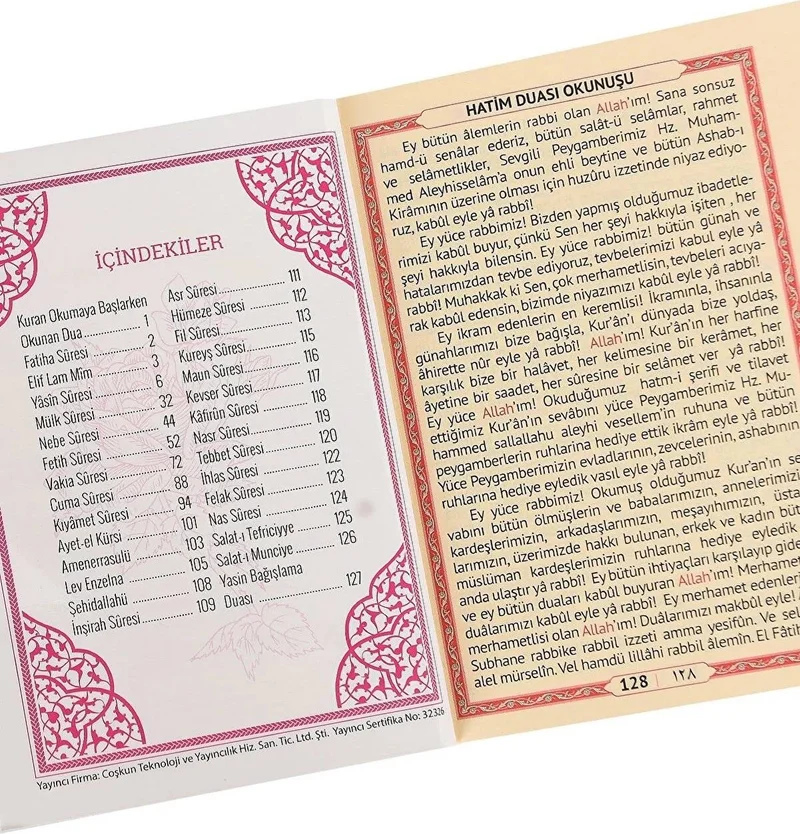 İÇİNDEKİLER
Kuran Okumaya Başlarken
Okunan Dua ............ 1
Fatiha Sûresi ............ 2
Elif Lam Mîm ............ 3
Yâsîn Sûresi ............ 6
Mülk Sûresi ............ 32
Nebe Sûresi ............ 44
Fetih Sûresi ............ 52
Vakia Sûresi ............ 72
Cuma Sûresi ............ 88
Kıyâmet Sûresi ............ 94
Ayet-el Kürsi ............ 101
Amenerrasulü ............ 103
Lev Enzelna ............ 105
Şehidallahü ............ 108
İnşirah Sûresi ............ 109
Asr Sûresi ............ 111
Hümeze Sûresi ............ 112
Fil Sûresi ............ 113
Kureyş Sûresi ............ 115
Maun Sûresi ............ 116
Kevser Sûresi ............ 117
Kâfirûn Sûresi ............ 118
Nasr Sûresi ............ 119
Tebbet Sûresi ............ 120
İhlas Sûresi ............ 122
Felak Sûresi ............ 123
Nas Sûresi ............ 124
Salat-ı Tefriciyye ............ 125
Salat-ı Munciye ............ 126
Yasin Bağışlama
Duası ............ 127
Yayıncı Firma: Coşkun Teknoloji ve Yayıncılık Hiz. San. Tic. Ltd. Şti. Yayıncı Sertifika No: 32326
HATİM DUASI OKUNUŞU
Ey bütün âlemlerin rabbi olan Allah'ım! Sana sonsuz
hamd-ü senâlar ederiz, bütün salât-ü selâmlar, rahmet
ve selâmetlikler, Sevgili Peygamberimiz Hz. Muham-
med Aleyhisselâm'a onun ehli beytine ve bütün Ashab-ı
Kirâmının üzerine olması için huzûru izzetinde niyaz ediyo-
ruz, kabûl eyle yâ rabbî!
Ey yüce rabbimiz! Bizden yapmış olduğumuz ibadetle-
rimizi kabûl buyur, çünkü Sen her şeyi hakkıyla işiten , her
şeyi hakkıyla bilensin. Ey yüce rabbimiz! bütün günah ve
hatalarımızdan tevbe ediyoruz, tevbelerimizi kabul eyle yâ
rabbî! Muhakkak ki Sen, çok merhametlisin, tevbeleri acıya-
rak kabûl edensin, bizimde niyazımızı kabûl eyle yâ rabbî!
Ey ikram edenlerin en keremlisi! İkramınla, ihsanınla
günahlarımızı bize bağışla, Kur'ân'ı dünyada bize yoldaş,
âhirette nûr eyle yâ rabbî! Allah'ım! Kur'ân'ın her harfine
karşılık bize bir halâvet, her kelimesine bir kerâmet, her
âyetine bir saadet, her sûresine bir selâmet ver yâ rabbî!
Ey yüce Allah'ım! Okuduğumuz hatm-i şerifi ve tilavet
ettiğimiz Kur'ân'ın sevâbını yüce Peygamberimiz Hz. Mu-
hammed sallallahu aleyhi vesellem'in ruhuna ve bütün
peygamberlerin ruhlarına hediye ettik ikrâm eyle yâ rabbî!
Yüce Peygamberimizin evladlarının, zevcelerinin, ashabının
ruhlarına hediye eyledik vasıl eyle yâ rabbî!
Ey yüce rabbimiz! Okumuş olduğumuz Kur'an'ın se
vabını bütün ölmüşlerin ve babalarımızın, annelerimizi
kardeşlerimizin, arkadaşlarımızın, meşayıhımızın, üsta
larımızın, üzerimizde hakkı bulunan, erkek ve kadın büt
müslüman kardeşlerimizin ruhlarına hediye eyledik
anda ulaştır yâ rabbî! Ey bütün ihtiyaçları karşılayıp gide
ve ey bütün duaları kabul buyuran Allah'ım! Merhamet
duâlarımızı kabul eyle yâ rabbî! Ey merhamet edenler
merhametlisi olan Allah'ım! Duâlarımızı makbûl eyle!
Subhane rabbike rabbil izzeti amma yesifûn. Ve sel
alel mürselîn. Vel hamdü lillâhi rabbil âlemîn. El Fâtih
128 ١٢٨